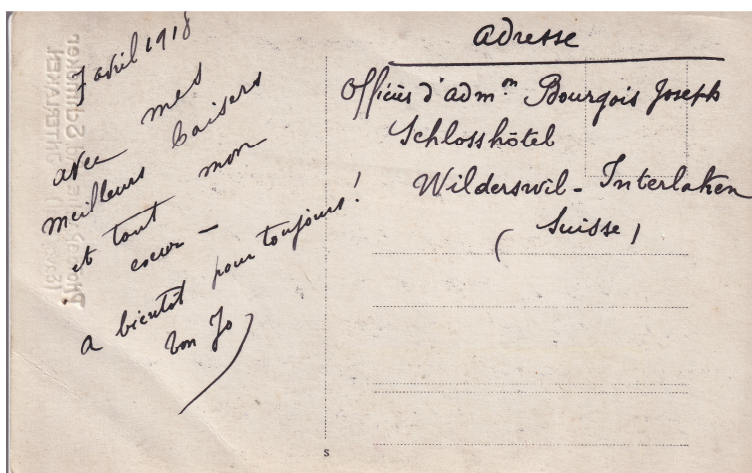 7 avril 1918
avec mes
meilleurs baisers
et tout mon
coeur –
a bientôt pour toujours!
ton Jo
Adresse
Officier d'admon Bourgois Joseph
Schlosshôtel
Wilderswil - Interlaken
(Suisse)
INTERLAKEN
S